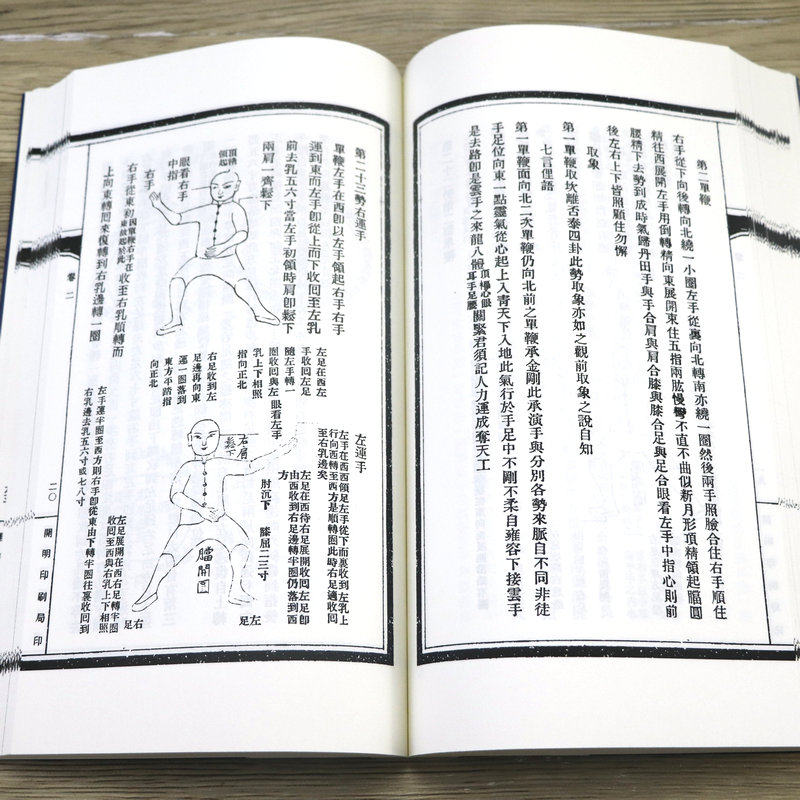 第二單鞭
右手從下向後轉向北繞一小圈左手從裏向北轉南亦繞一圈然後兩手照臉合住右手順住
精往西展開左手用倒轉精向東展開東住五指兩肱慢彎不直不曲似新月形頂精領起膪圓
腰精下去勢到成時氣歸丹田手與手合肩與肩合膝與膝合足與足合眼看左手中指心則前
後左右上下皆照顧住勿懈
取象
第一單鞭取坎離舌泰四卦此勢取象亦如之觀前取象之說自知
七言俚語
第一單鞭面向北二次單鞭仍向北前之單鞭承金剛此承演手與分別各勢來脈自不同非徒
手足位向東一點靈氣從心起上入青天下入地此氣行於手足中不剛不柔自雍容下接雲手
是去路卽是雲手之來龍八體頂襠心眼耳手足腰關緊君須記人力運成奪天工
第二十三勢右運手
單鞭左手在西卽以左手領起右手右手
運到東而左手卽從上而下收回至左乳
前去乳五六寸當左手初領時肩卽鬆下
兩肩一齊鬆下
頂精
領起
眼看右手
中指
右手
右手從東初因單鞭右手在東故起於此收至右乳順轉而
上向東轉囘來復轉到右乳邊轉一圈
左足在西左
手收囘左足
隨左手轉一
圈收囘與左
乳上下相照
指向正北
右足收到左
足邊再向東
運一圈落到
東方平踏指
向正北
左運手
左手在西西領足左手從下而裏收到左乳上
行向西轉至西方是順轉圈此時右足適收囘
至右乳邊矣
左足在西待右足展開收囘左足卽
由西收到右足邊轉半圈仍落到西
方
眼看左手
右肩
鬆下
肘沉下
膝屈二三寸
膪開圓
左足
右足
左足展開在西右足轉半圈
收囘至西與右乳上下相照
左手運半圈至西方則右手卽從東由下轉半圈往裏收囘到
右乳邊去乳五六寸或七八寸
卷二
二〇
開明印刷局印